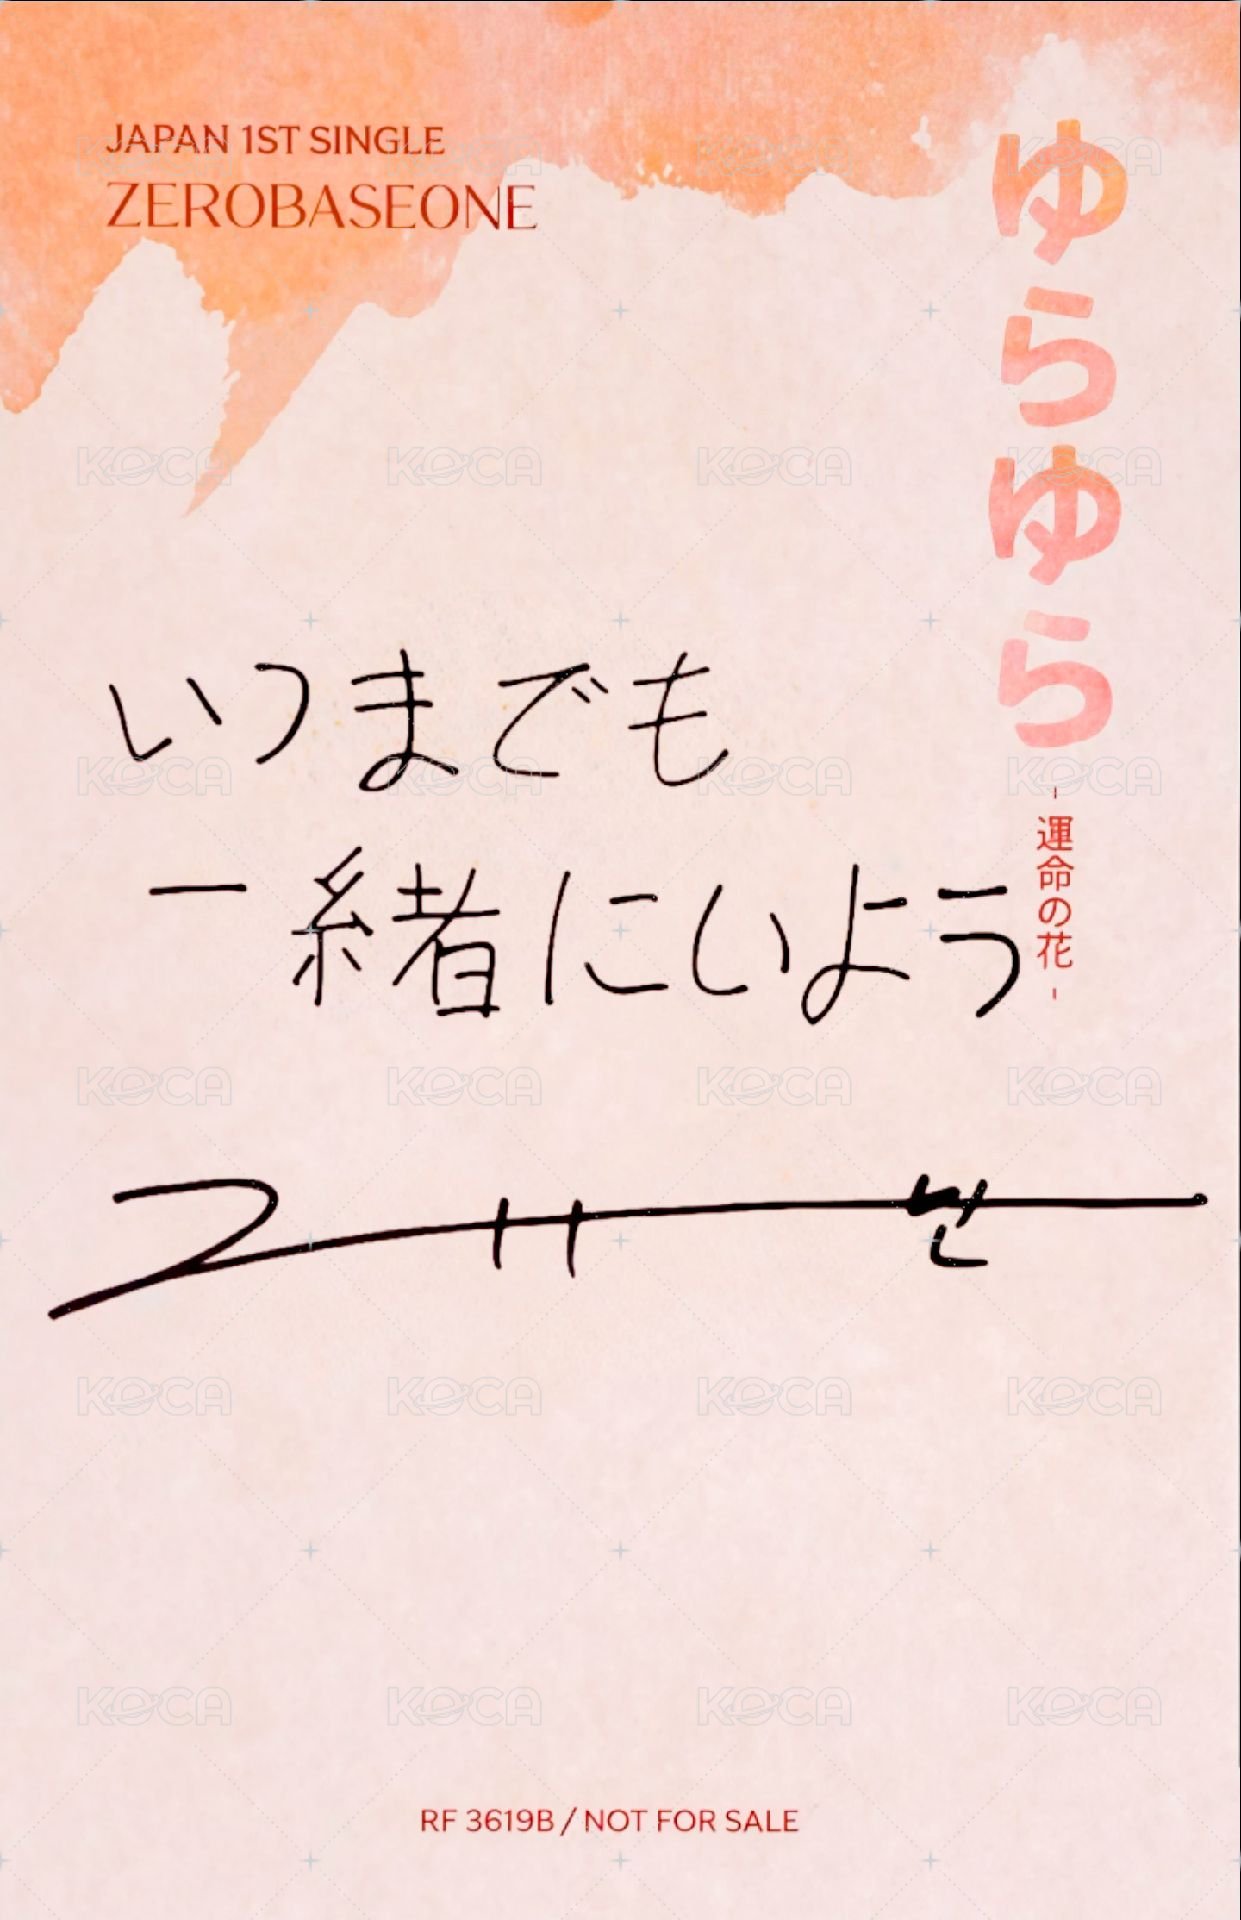 JAPAN 1ST SINGLE
ZEROBASEONE
ゆらゆら
-運命の花-
いつまでも
一緒にいよう
RF 3619B / NOT FOR SALE
KOCA